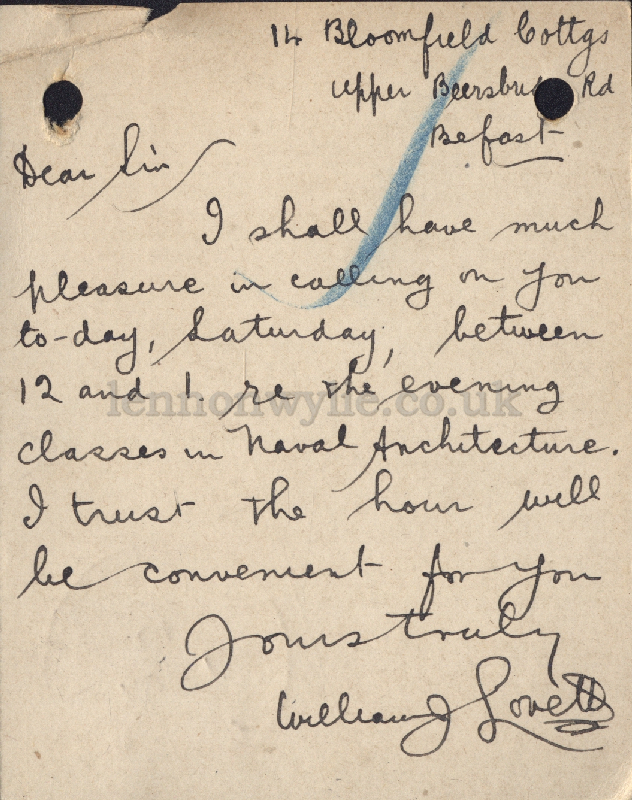 14 Bloomfield Cottgs
Upper Beersbridge Rd
Befast
Dear Sir
I shall have much
pleasure in calling on you
to-day, Saturday, between
12 and 1. re the evening
lennonwylie.co.uk
classes in Naval Architecture.
I trust the hour will
be convenient for you
Yours truly
William J Lovett